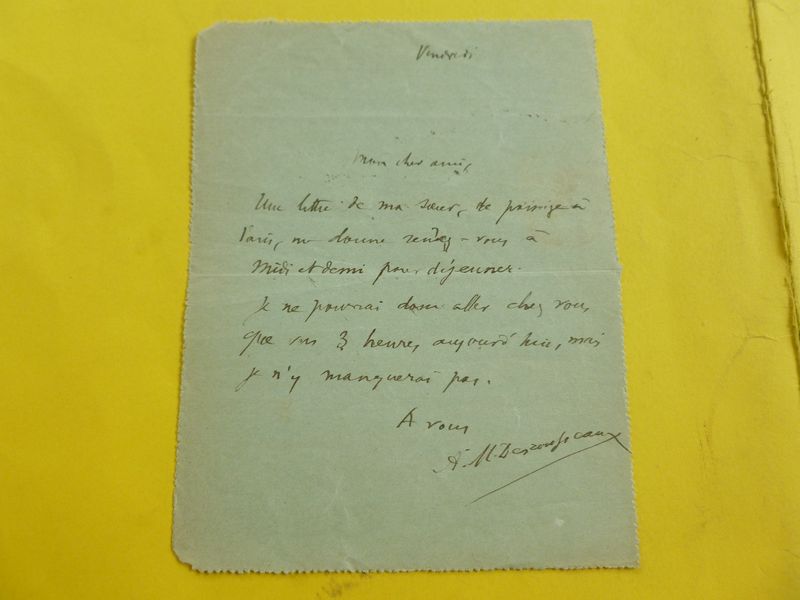 Vendredi
Mon cher ami,
Une lettre de ma sœur, de passage à
Paris, me donne rendez-vous à
Midi et demi pour déjeuner.
Je ne pourrai donc aller chez vous
que vers 3 heures, aujourd'hui, mais
je n'y manquerai pas.
A vous
A. M. Desrousseaux